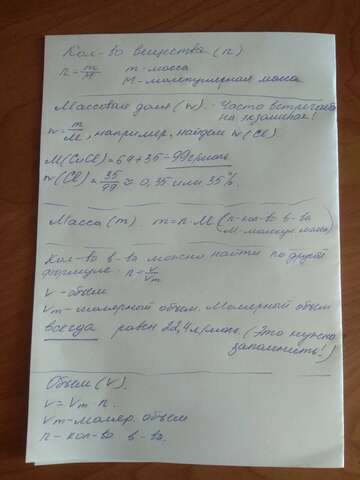 Кол-во вещества (n)
n = m/M   m - масса
M - молекулярная масса
Массовая доля (w). Часто встречается
на экзамене!
w = m/M, например, найдём w(Cl).
M(CuCl) = 64+35 = 99 г/моль
w(Cl) = 35/99 ≈ 0,35 или 35%.
Масса (m). m = n·M (n - кол-во в-ва
M - молекул. масса)
Кол-во в-ва можно найти по другой
формуле: n = V/Vm
V - объем
Vm - молярный объем. Молярный объем
всегда равен 22,4 л/моль. (Это нужно
запомнить!)
Объем (V).
V = Vm·n.
Vm - моляр. объем
n - кол-во в-ва.